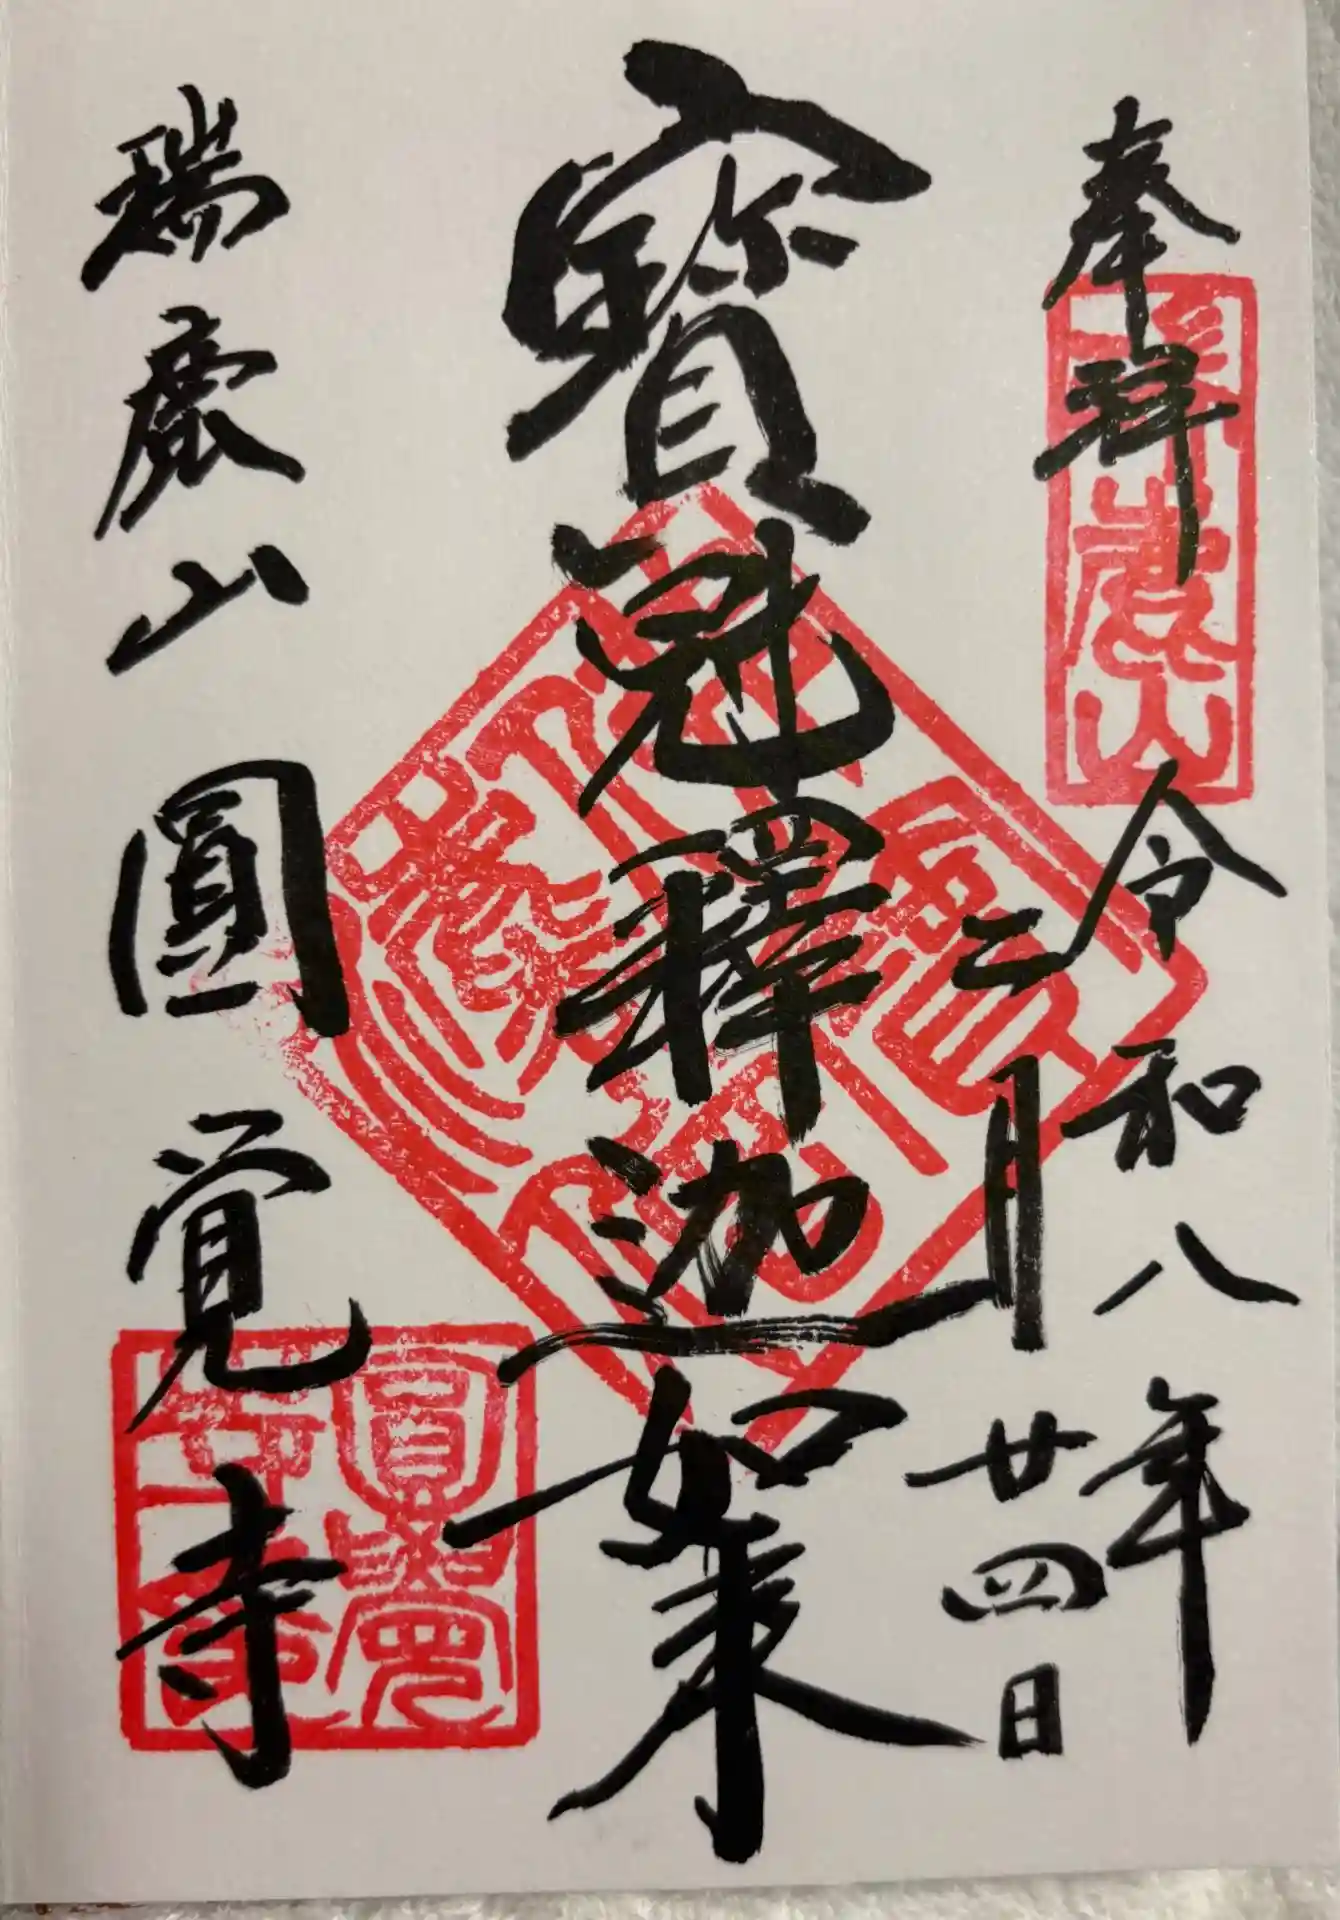 奉拝
令和八年
二月廿四日
寳冠釋迦如来
瑞鹿山 圓覚寺
瑞鹿山